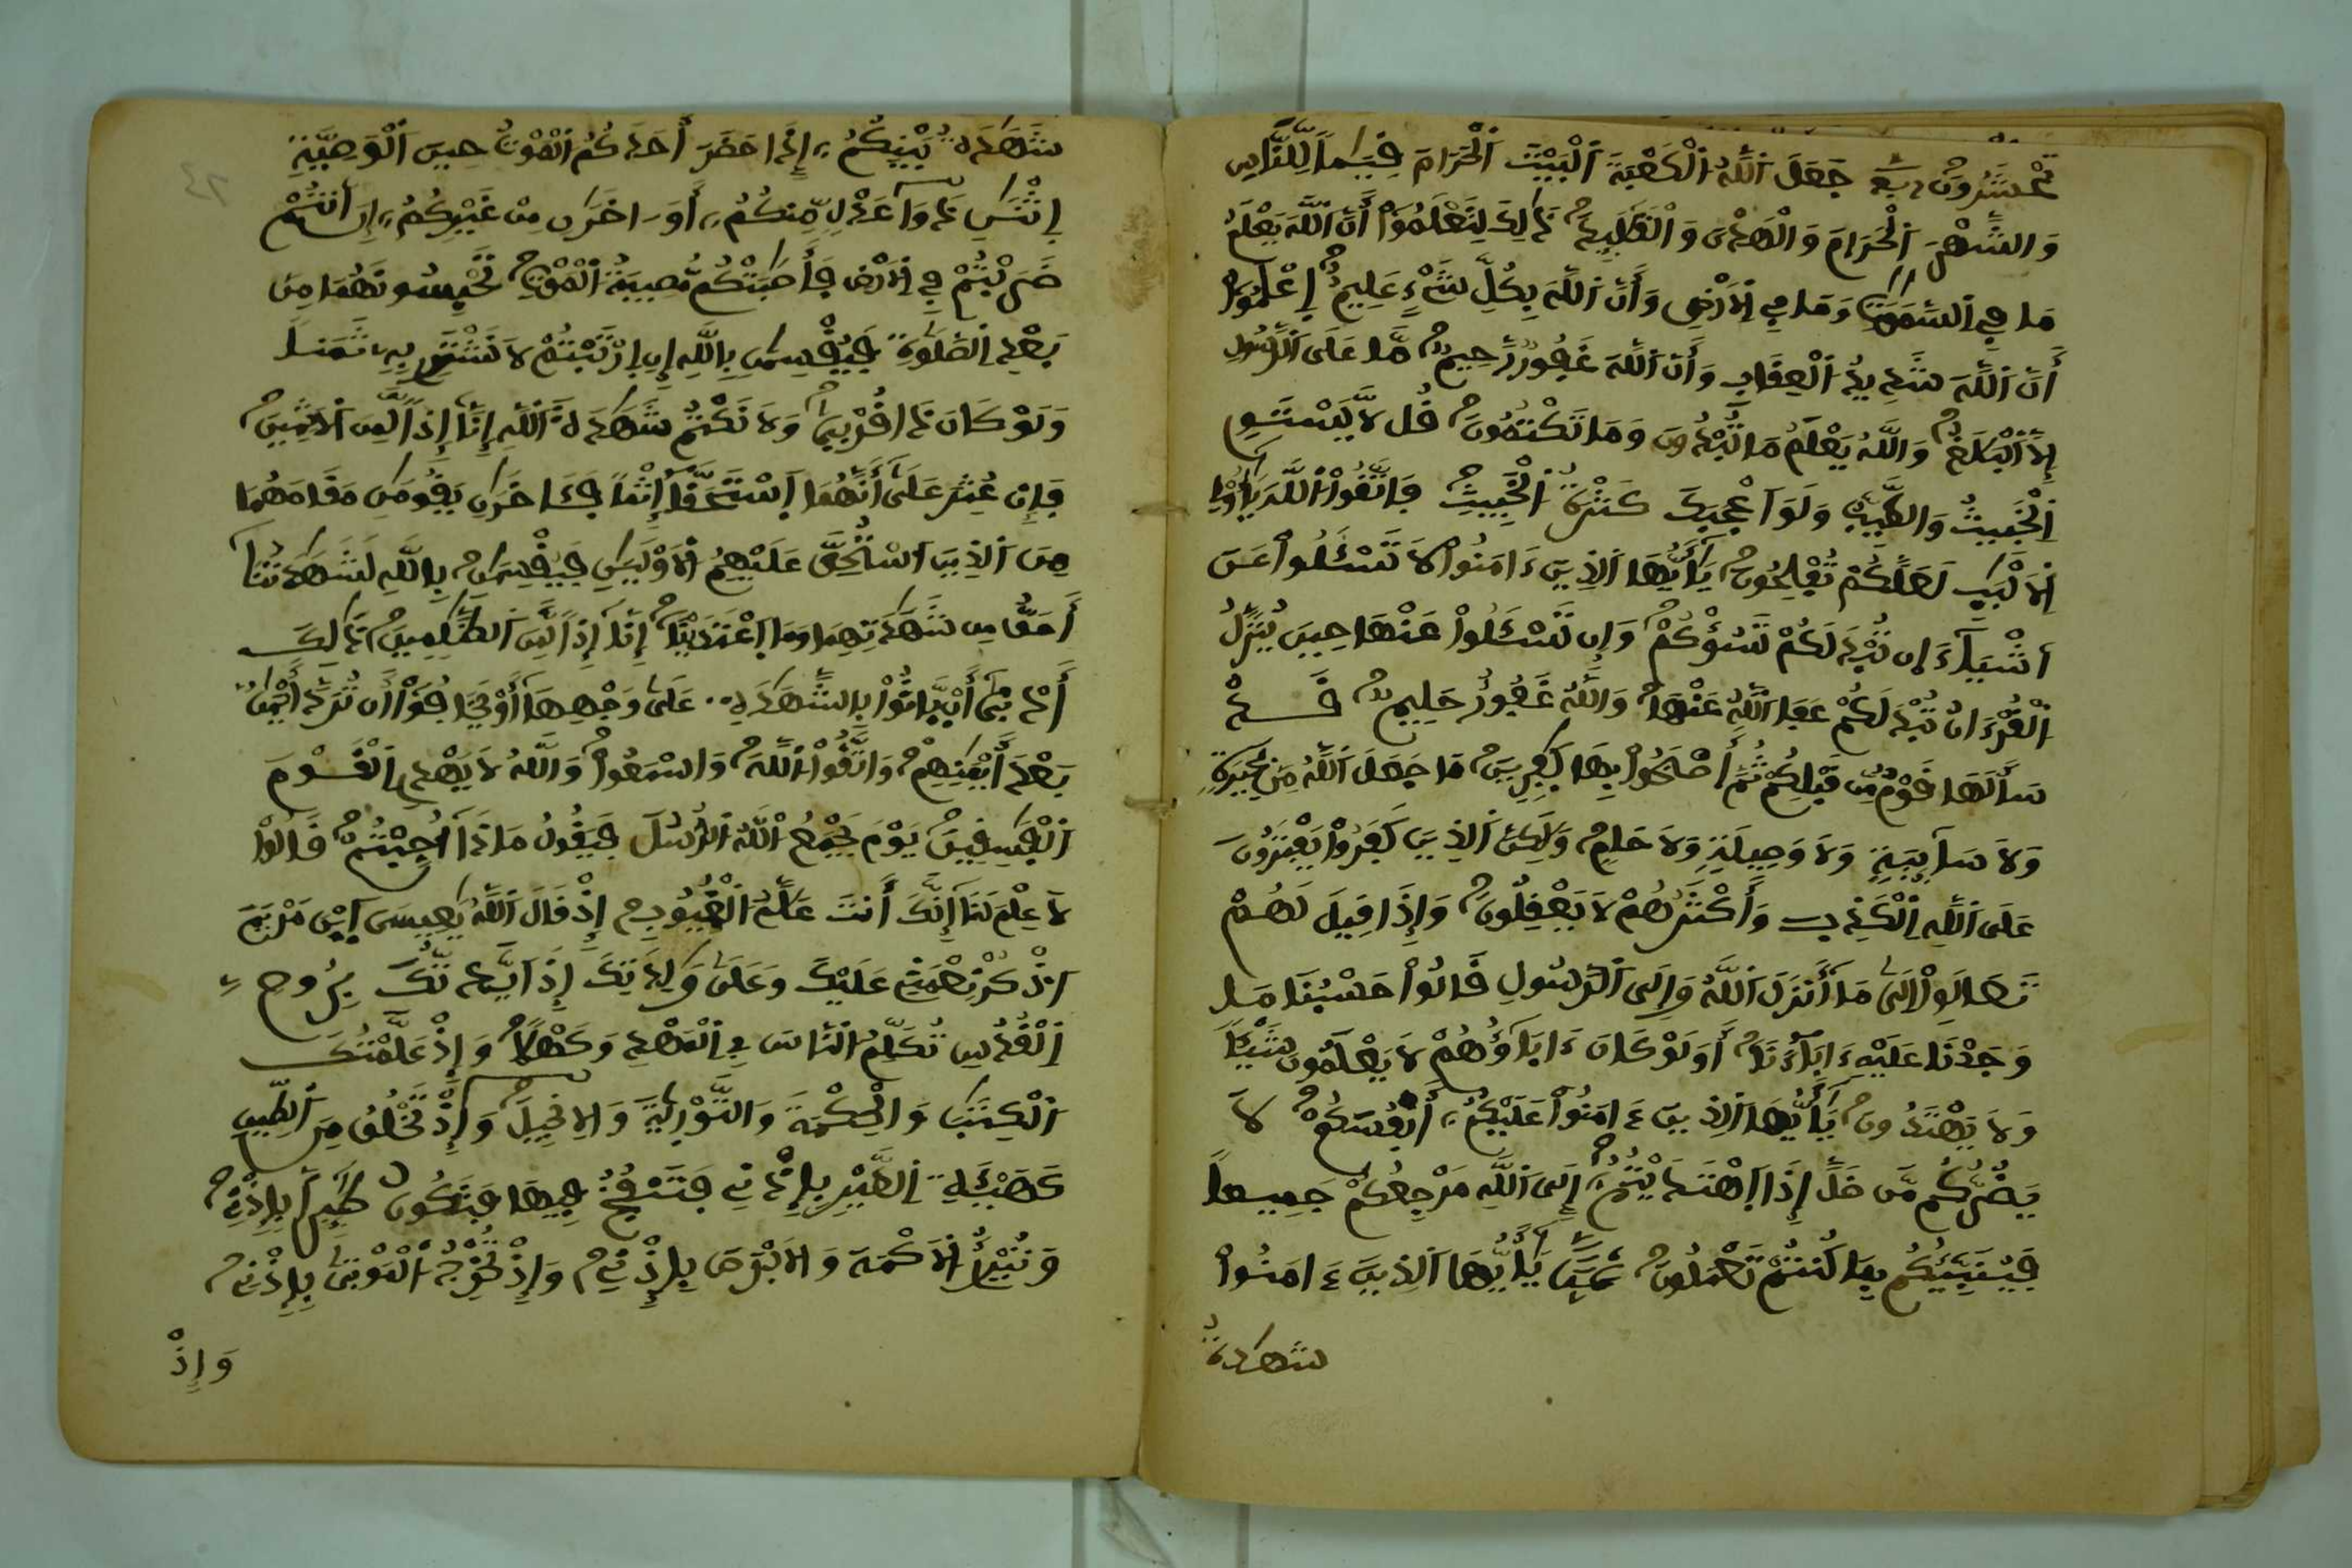 تُحْشَرُونَ جَعَلَ اَللَّهُ اَلْكَعْبَةَ اَلْبَيْتَ اَلْحَرَامَ قِيَٰماً لِّلنَّاسِ
وَالشَّهْرَ اَلْحَرَامَ وَالْهَدْىَ وَالْقَلَٰٓئِدَ ذَٰلِكَ لِتَعْلَمُوٓاْ أَنَّ اَللَّهَ يَعْلَمُ
مَا فِے اِلسَّمَٰوَٰتِ وَمَا فِے اِلَارْضِ وَأَنَّ اَللَّهَ بِكُلِّ شَےْءٍ عَلِيمٌ اِعْلَمُوٓاْ
أَنَّ اَللَّهَ شَدِيدُ اُلْعِقَابِ وَأَنَّ اَللَّهَ غَفُورٌ رَّحِيمٌ مَّا عَلَى اَلرَّسُولِ
إِلَّا اَلْبَلَٰغُ وَاللَّهُ يَعْلَمُ مَا تُبْدُونَ وَمَا تَكْتُمُونَ قُل لَّا يَسْتَوِے
اِلْخَبِيثُ وَالطَّيِّبُ وَلَوَ اَعْجَبَكَ كَثْرَةُ اُلْخَبِيثِ فَاتَّقُواْ اُللَّهَ يَٰٓأُوْلِے
اِلَالْبَٰبِ لَعَلَّكُمْ تُفْلِحُونَ يَٰٓأَيُّهَا اَلذِينَ ءَامَنُواْ لَا تَسْـَٔلُواْ عَنَ
اَشْيَآءَ ان تُبْدَ لَكُمْ تَسُؤْكُمْ وَإِن تَسْـَٔلُواْ عَنْهَا حِينَ يُنَزَّلُ
اُلْقُرْءَانُ تُبْدَ لَكُمْ عَفَا اَللَّهُ عَنْهَا وَاللَّهُ غَفُورٌ حَلِيمٌ قَدْ
سَأَلَهَا قَوْمٌ مِّن قَبْلِكُمْ ثُمَّ أَصْبَحُواْ بِهَا كَٰفِرِينَ مَا جَعَلَ اَللَّهُ مِنۢ بَحِيرَةٍ
وَلَا سَآئِبَةٍ وَلَا وَصِيلَةٍ وَلَا حَامٍ وَلَٰكِنَّ اَلذِينَ كَفَرُواْ يَفْتَرُونَ
عَلَى اَللَّهِ اِلْكَذِبَ وَأَكْثَرُهُمْ لَا يَعْقِلُونَ وَإِذَا قِيلَ لَهُمْ
تَعَالَوِاْ اِلَىٰ مَآ أَنزَلَ اَللَّهُ وَإِلَى اَلرَّسُولِ قَالُواْ حَسْبُنَا مَا
وَجَدْنَا عَلَيْهِ ءَابَآءَنَآ أَوَلَوْ كَانَ ءَابَآؤُهُمْ لَا يَعْلَمُونَ شَيْـٔاً
وَلَا يَهْتَدُونَ يَٰٓأَيُّهَا اَلذِينَ ءَامَنُواْ عَلَيْكُمُۥٓ أَنفُسَكُمْ لَا
يَضُرُّكُم مَّن ضَلَّ إِذَا اَهْتَدَيْتُمُۥٓ إِلَى اَللَّهِ مَرْجِعُكُمْ جَمِيعاً
فَيُنَبِّئُكُم بِمَا كُنتُمْ تَعْمَلُونَ يَٰٓأَيُّهَا اَلذِينَ ءَامَنُواْ
شَهَٰدَةُ
شَهَٰدَةُ بَيْنِكُمُۥٓ إِذَا حَضَرَ أَحَدَكُمُ اُلْمَوْتُ حِينَ اَلْوَصِيَّةِ
اِثْنَٰنِ ذَوَا عَدْلٍ مِّنكُمُۥٓ أَوَ اٰخَرَٰنِ مِنْ غَيْرِكُمُۥٓ إِنَ اَنتُمْ
ضَرَبْتُمْ فِے اِلَارْضِ فَأَصَٰبَتْكُم مُّصِيبَةُ اُلْمَوْتِ تَحْبِسُونَهُمَا مِنۢ
بَعْدِ اِلصَّلَوٰةِ فَيُقْسِمَٰنِ بِاللَّهِ إِنِ اِرْتَبْتُمْ لَا نَشْتَرِے بِهِۦ ثَمَناً
وَلَوْ كَانَ ذَا قُرْب۪ىٰ وَلَا نَكْتُمُ شَهَٰدَةَ اَللَّهِ إِنَّآ إِذاً لَّمِنَ اَلَاثِمِينَ
فَإِنْ عُثِرَ عَلَىٰٓ أَنَّهُمَا اَسْتَحَقَّآ إِثْماً فَـَٔاخَرَٰنِ يَقُومَٰنِ مَقَامَهُمَا
مِنَ اَلذِينَ اَسْتُحِقَّ عَلَيْهِمُ اُلَاوْلَيَٰنِ فَيُقْسِمَٰنِ بِاللَّهِ لَشَهَٰدَتُنَآ
أَحَقُّ مِن شَهَٰدَتِهِمَا وَمَا اَعْتَدَيْنَآ إِنَّآ إِذاً لَّمِنَ اَلظَّٰلِمِينَ ذَٰلِكَ
أَدْنَىٰٓ أَنْ يَّاتُواْ بِالشَّهَٰدَةِ عَلَىٰ وَجْهِهَآ أَوْ يَخَافُوٓاْ أَن تُرَدَّ أَيْمَٰنُۢ
بَعْدَ أَيْمَٰنِهِمْ وَاتَّقُواْ اُللَّهَ وَاسْمَعُواْ وَاللَّهُ لَا يَهْدِے اِلْقَوْمَ
اَلْفَٰسِقِينَ يَوْمَ يَجْمَعُ اُللَّهُ اُلرُّسُلَ فَيَقُولُ مَاذَآ أُجِبْتُمْ قَالُواْ
لَا عِلْمَ لَنَآ إِنَّكَ أَنتَ عَلَّٰمُ اُلْغُيُوبِ إِذْ قَالَ اَللَّهُ يَٰعِيسَى اَبْنَ مَرْيَمَ
اَذْكُرْ نِعْمَتِے عَلَيْكَ وَعَلَىٰ وَٰلِدَتِكَ إِذَ اَيَّدتُّكَ بِرُوحِ
اِلْقُدُسِ تُكَلِّمُ اُلنَّاسَ فِے اِلْمَهْدِ وَكَهْلًا وَإِذْ عَلَّمْتُكَ
اَلْكِتَٰبَ وَالْحِكْمَةَ وَالتَّوْر۪يٰةَ وَالِانجِيلَ وَإِذْ تَخْلُقُ مِنَ اَلطِّينِ
كَهَيْـَٔةِ اِلطَّيْرِ بِإِذْنِے فَتَنفُخُ فِيهَا فَتَكُونُ طَٰٓئِراً بِإِذْنِے
وَتُبْرِئُ اُلَاكْمَهَ وَالَابْرَصَ بِإِذْنِے وَإِذْ تُخْرِجُ اُلْمَوْتىٰ بِإِذْنِے
وَإِذْ